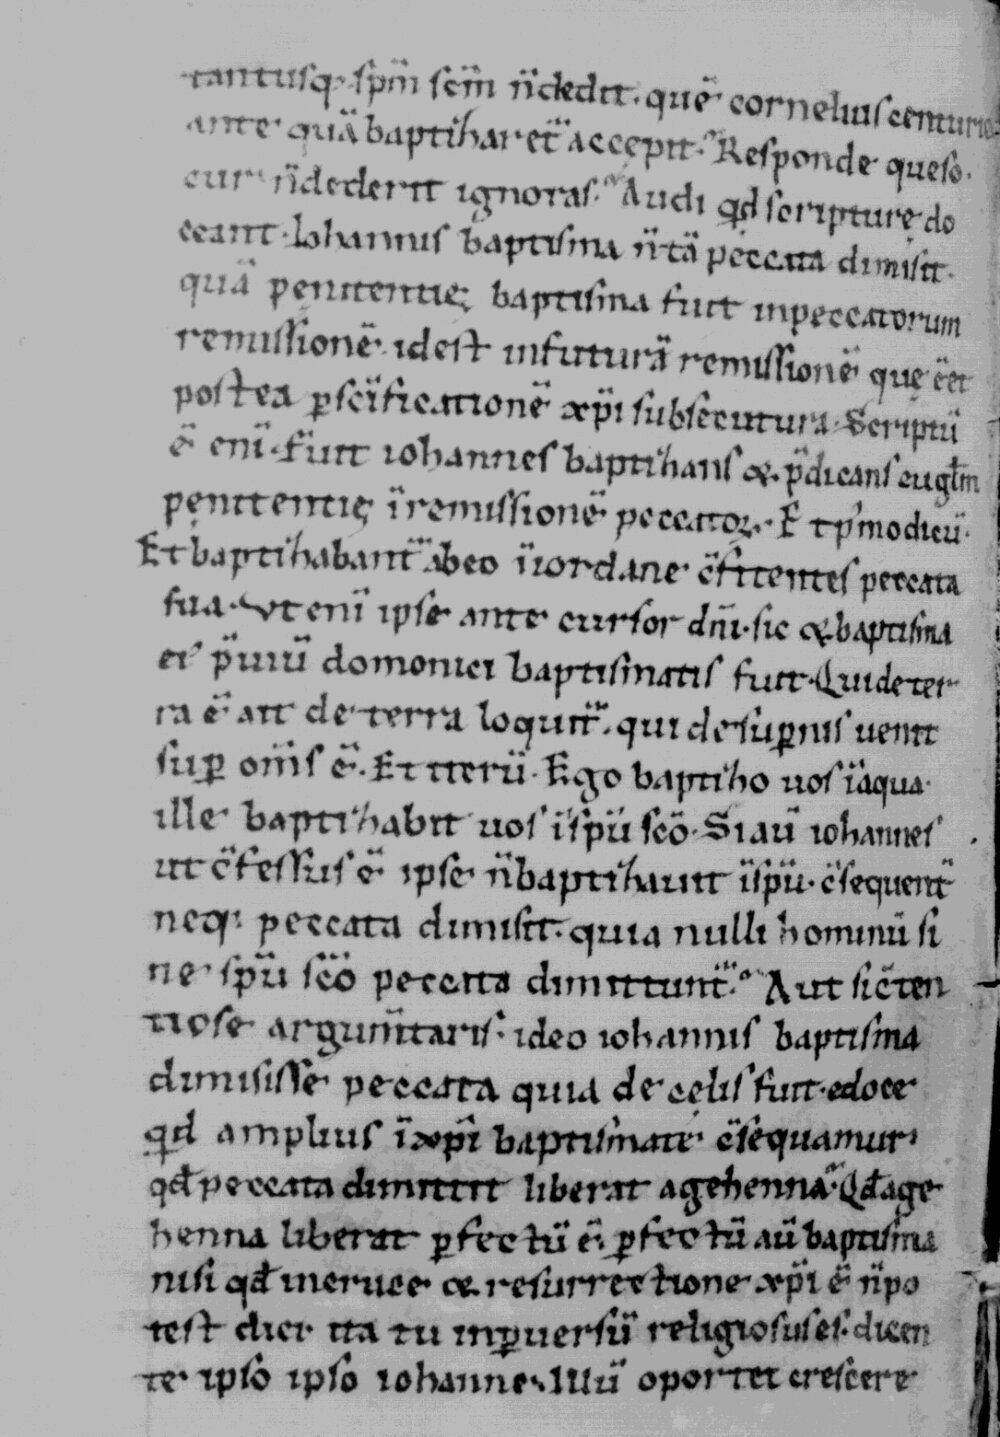 tantusq; sp̅m scm̅ n̅ dedit. que̅ cornelius centurio
ante qua̅ baptiharet᷑ accepit. Responde queso.
cur n̅ dederit ignoras. Audi qd̅ scripturę do
ceant. Iohannis baptisma n̅ ta̅ peccata dimisit.
qua̅ penitentię baptisma fuit in peccatorum
remissione̅. id est in futura̅ remissione̅ quę e̅et
postea ꝑ sci̅ficatione̅ xp̅i subsecutura. Scriptu̅
e̅ eni̅. Fuit iohannes baptihans & p̅dicans eugl̅m
penitentię i̅ remissione̅ peccatoꝝ. Et p̅ modicu̅.
Et baptihabant᷑ ab eo i̅ iordane c̅fitentes peccata
sua. Vt eni̅ ipse ante cursor dn̅i. sic & baptisma
ei' p̅uiu̅ domonici baptismatis fuit. Qui de ter
ra e̅ ait de terra loquit᷑. qui de suꝑnis uenit
suꝑ om̅s e̅. Et iteru̅. Ego baptiho uos i̅ aqua.
ille baptihabit uos i̅ spu̅ sc̅o. Si au̅ iohannes
ut c̅fessus e̅ ipse n̅ baptihauit i̅ spu̅. c̅sequent᷑
neq; peccata dimisit. quia nulli hominu̅ si
ne spu̅ sc̅o peccata dimittunt᷑. Aut si c̅ten
tiose argum̅taris. ideo iohannis baptisma
dimisisse peccata quia de celis fuit. edoce
qd̅ amplius i̅ xp̅i baptismate c̅sequamur.
qd̅ peccata dimittit liberat a gehenna. Qd̅ a ge
henna liberat ꝑfectu̅ e̅. ꝑfectu̅ au̅ baptisma
nisi qd̅ in cruce & resurrectione xp̅i e̅ n̅ po
test dici. ita tu in ꝑuersu̅ religiosus es. dicen
te ipso ipso iohanne. Illu̅ oportet crescere